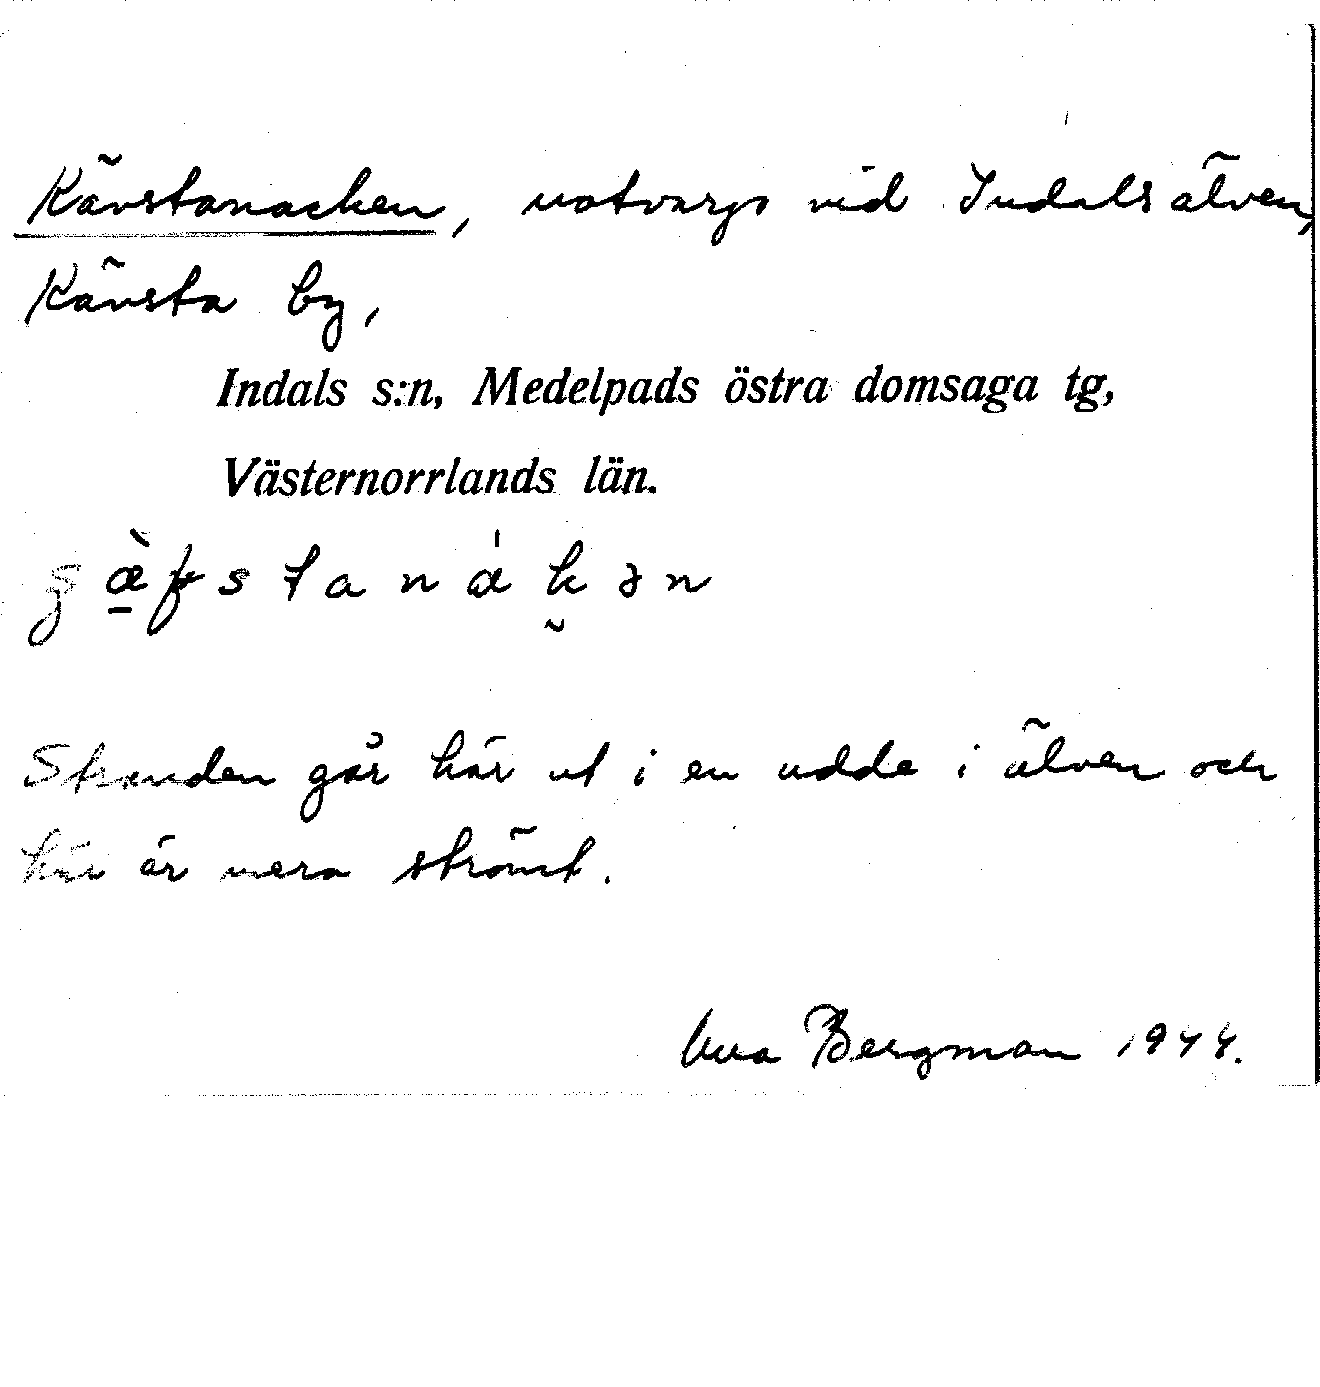 Kävstanacken, notvarp vid Indalsälven,
Kävsta by,
Indals s:n, Medelpads östra domsaga tg,
Västernorrlands län.
Stranden går här ut i en udde i älven och
här är nera strömt.
Bergman 1944.